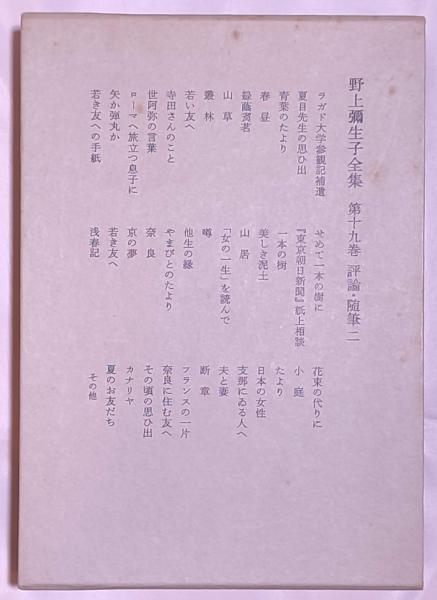 野上彌生子全集 第十九巻 評論・随筆二
ラガド大学参観記補遺
夏目先生の思ひ出
青葉のたより
春昼
藤蔭茗
山草
叢林
若い友へ
寺田さんのこと
世阿弥の言葉
ローマへ旅立つ息子に
矢か弾丸か
若き友への手紙
せめて一本の樹に
『東京朝日新聞』紙上相談
一本の樹
美しき泥土
山居
「女の一生」を読んで
噂
他生の縁
やまびとのたより
奈良
京の夢
若き友へ
浅春記
花束の代りに
小庭
たより
日本の女性
支那にゐる人へ
夫と妻
断章
フランスの一片
奈良に住む友へ
その頃の思ひ出
カナリヤ
夏のお友だち
その他